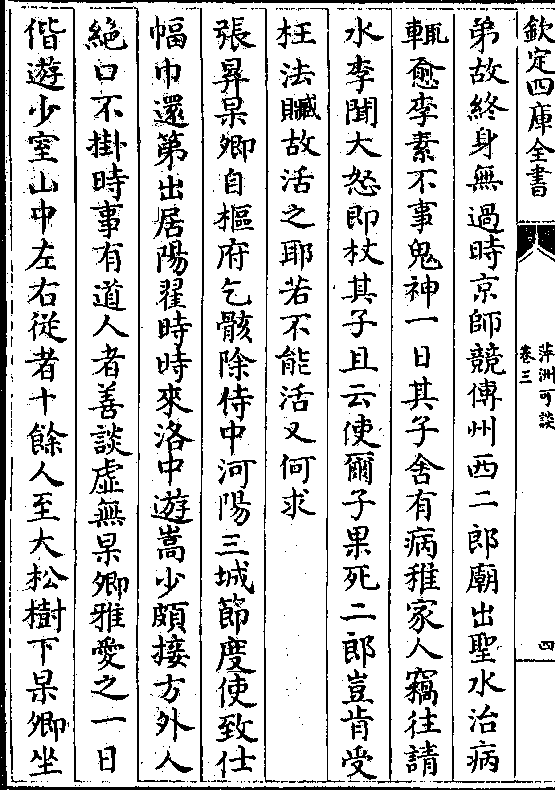 欽定四庫全書
萍洲可談
卷三
四
弟故終身無過時京師競傳州西二郎廟出聖水治病
輒愈李素不事鬼神一日其子舍有病稚家人竊往請
水李聞大怒即杖其子且云使爾子果死二郎豈肯受
枉法贓故活之耶若不能活又何求
張昇杲卿自樞府乞骸除侍中河陽三城節度使致仕
幅巾還第出居陽翟時時來洛中遊嵩少頗接方外人
絶口不掛時事有道人者善談虛無杲卿雅愛之一日
偕遊少室山中左右從者十餘人至大松樹下杲卿坐